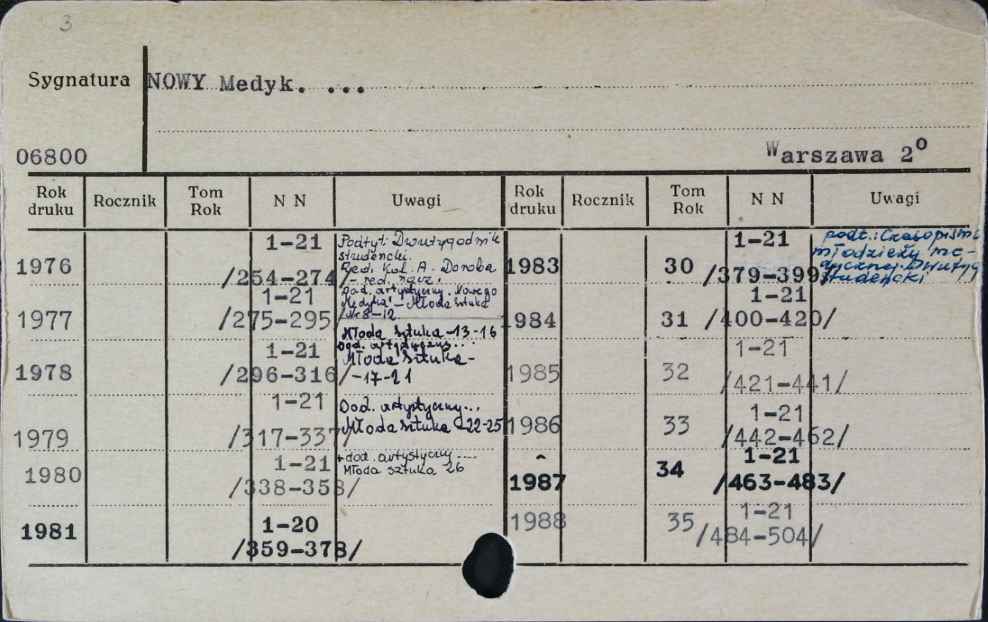 3
Sygnatura NOWY Medyk. ...
06800 Warszawa 2°
Rok druku Rocznik Tom Rok N N Uwagi Rok druku Rocznik Tom Rok N N Uwagi
1976 1-21 /254-274/ Podtyt: Dwutygodnik
studencki.
Red. Kol. A. Doroba
- red. nacz.
Dod. artystyczny. Nowego
Medyka - Młoda sztuka
Nr 8-12
1977 1-21 /275-295/ Młoda sztuka -13-16
1978 1-21 /296-316/ Dod. artystyczny...
Młoda sztuka-
-17-21
1979 1-21 /317-337/ Dod. artystyczny...
Młoda sztuka -22-25
1980 1-21 /338-358/ +dod. artystyczny ....
Młoda sztuka 26
1981 1-20 /359-378/
1983 30 1-21 /379-399/ podt.: Czasopismo
młodzieży me-
dycznej. Dwutyg.
studencki
1984 31 1-21 /400-420/
1985 32 1-21 /421-441/
1986 33 1-21 /442-462/
1987 34 1-21 /463-483/
1988 35 1-21 /484-504/